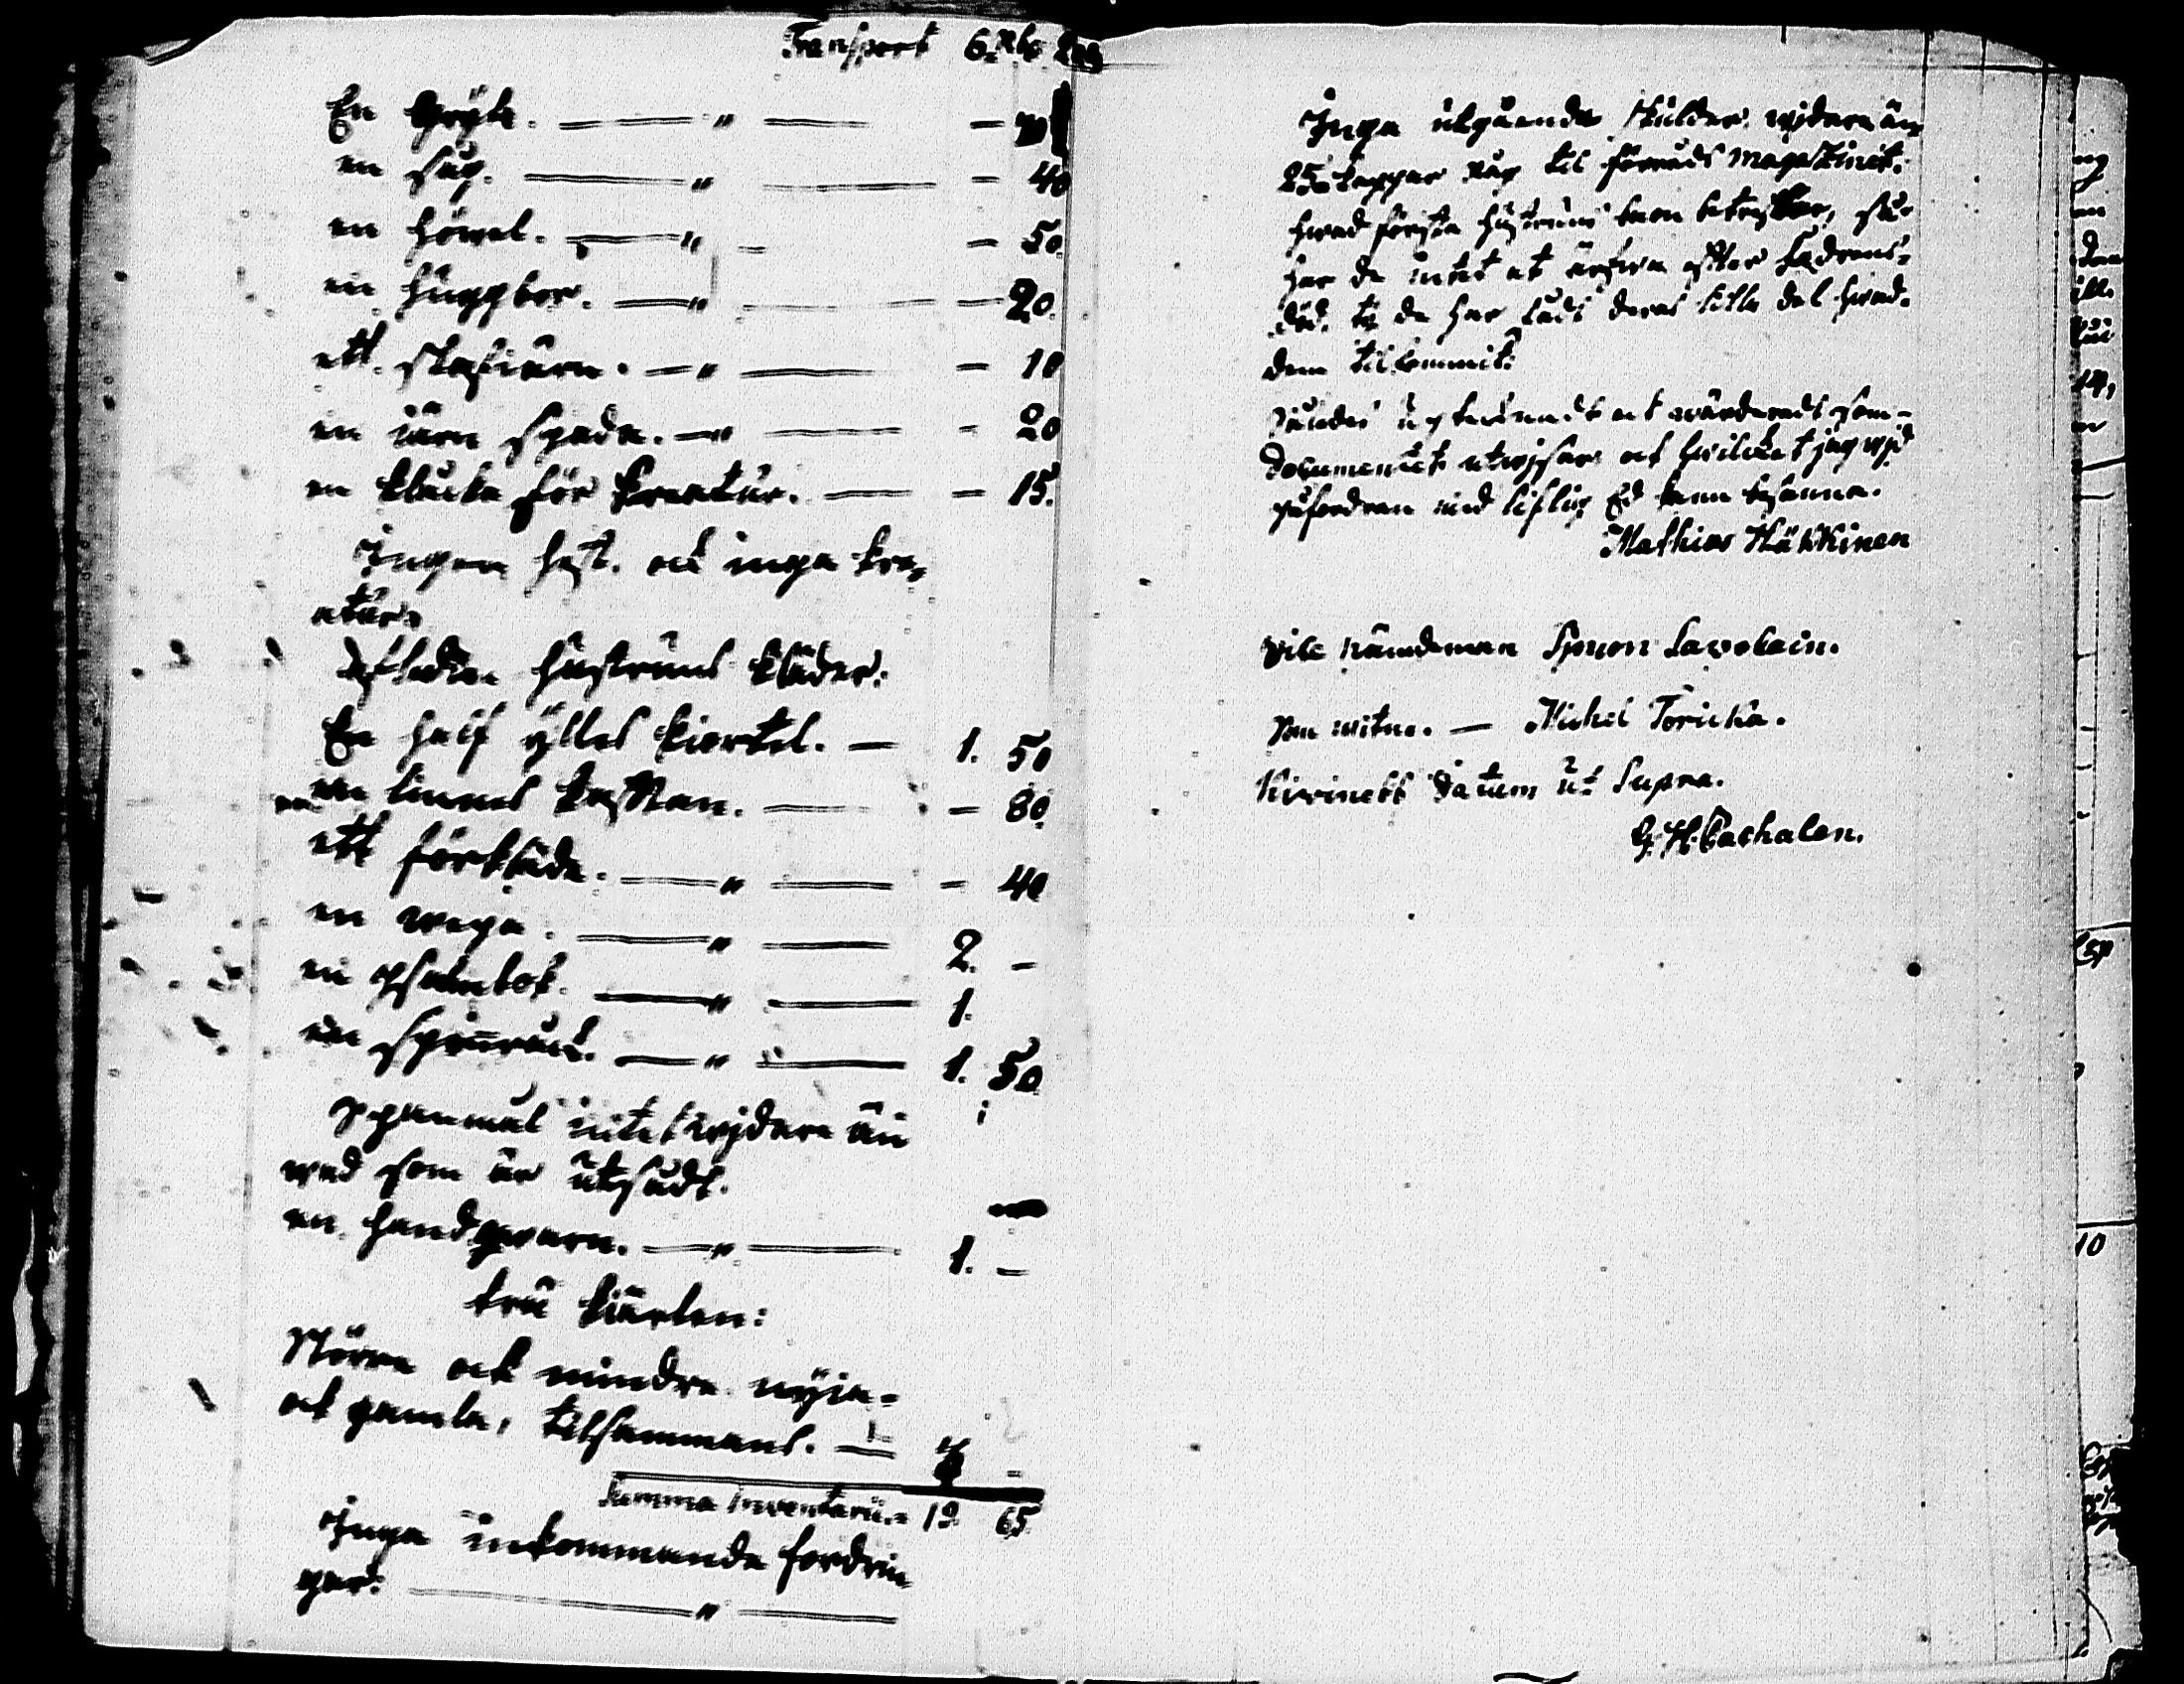 Transport 6 Rbs
En Gryta. — " — — 
en såg. — " — — 40
en höwel. — " — — 50.
en huggbor. — " — — 20.
ett skafiärn. — " — — 10
en iärn spada. — " — — 20
en klucka för kreatur. — — 15.
Ingen häst. ock inga kre-
atur.
Afledne hustruns kläder:
En half ylles kiortel. — 1. 50
en linnes kafftan. — — 80.
ett förkläde. — " — — 40
en wepa. — " — 2. —
en psalmbok. — " — 1.
en spinnrock. — " — 1. 50.
Spanmål intet widare än
wad som är utsådt.
en handqwarn. — " — 1. —
trä kiärlen:
större ock mindre nyia-
ock gamla, tilsammans. — —
Summa Inventarii. 19. 65.
Inga inkommande fordrin-
gar: — " —
Inga utgående skulder widare än
25 kappar råg til förråds magatzinet.
hwad första hustruns barn beträffar, så
har de intet at ärfwa efter fadrens
död, ty de har tagit deras lilla del hwad
dem tilkommit.
upteknadt och wärderadt som
documentet utwisar och hwilcket jag wid
påfordran med liflig Ed kann besanna.
Mathias Häkkinen
Vice nämdeman Simon Lavokain.
som witne. — Michel Toricka.
Kivinebb Datum ut Supra.
G. H. Cathalen.